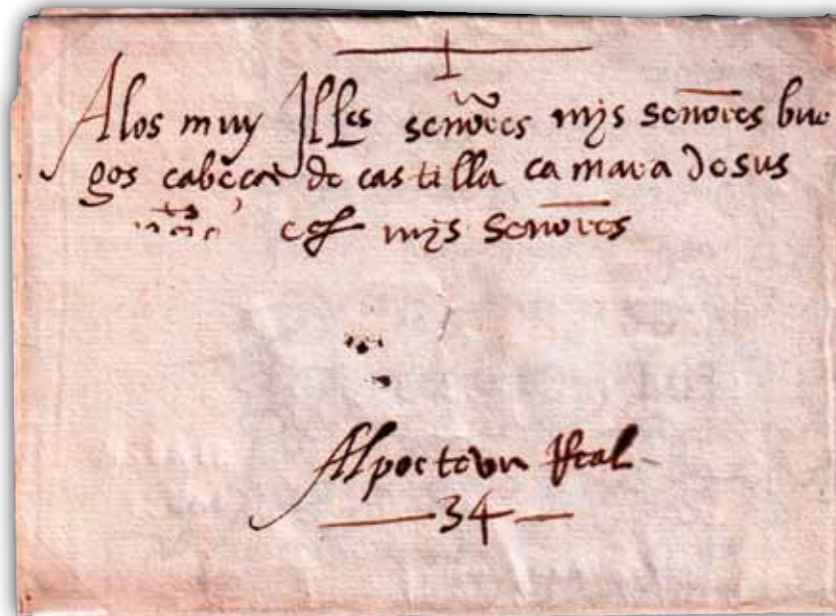 A los muy Illes señores mys señores bur
gos cabeça de castilla camara de sus
mys señores
Al porte vn Real
34